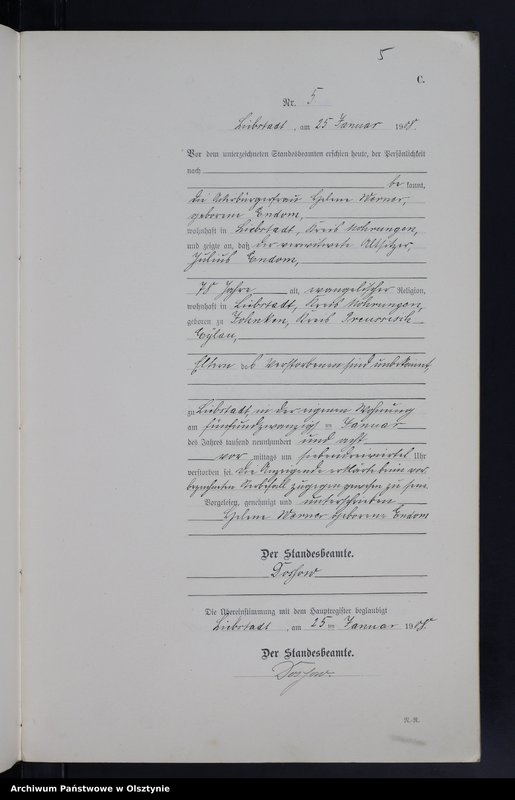 5
C.
Nr. 5
Liebstadt, am 25 Januar 1908.
Vor dem unterzeichneten Standesbeamten erschien heute, der Persönlichkeit
nach
be kannt,
die Ackerbürgerfrau Helene Werner,
geborene Endom,
wohnhaft in Liebstadt, Kreis Mohrungen,
und zeigte an, daß der verwitwete Altsitzer,
Julius Endom,
78 Jahre alt, evangelischer Religion,
wohnhaft in Liebstadt, Kreis Mohrungen,
geboren zu Kreis Preussisch
Eylau,
Eltern des Verstorbenen sind unbekannt
zu Liebstadt, in der eigenen Wohnung
am fünfundzwanzigsten Januar
des Jahres tausend neunhundert und acht
vor mittags um siebendreiviertel Uhr
verstorben sei. Die Anzeigende erklärte beim vor-
bezeichneten Sterbefall zugegen gewesen zu sein.
Vorgelesen, genehmigt und unterschrieben
Helene Werner geborene Endom
Der Standesbeamte.
Die Übereinstimmung mit dem Hauptregister beglaubigt
Liebstadt, am 25ten Januar 1908.
Der Standesbeamte.
R.-R.
Archiwum Państwowe w Olsztynie